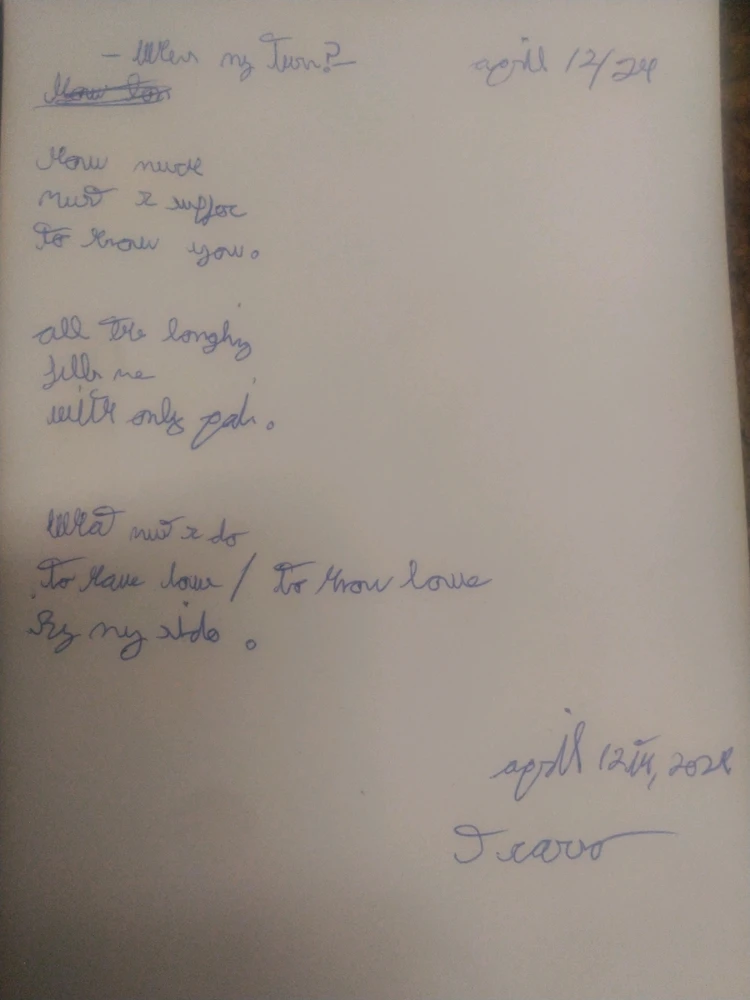 - When my Turn? - april 12/24
How much
must I suffer
to know you.
all the longing
fills me
with only pain.
What must I do
to have love / to know love
By my side.
april 12th, 2024